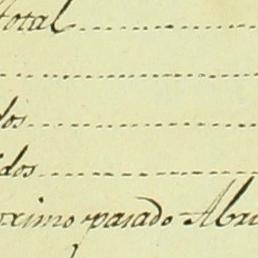 total
dos
idos
oximo pasado Abri